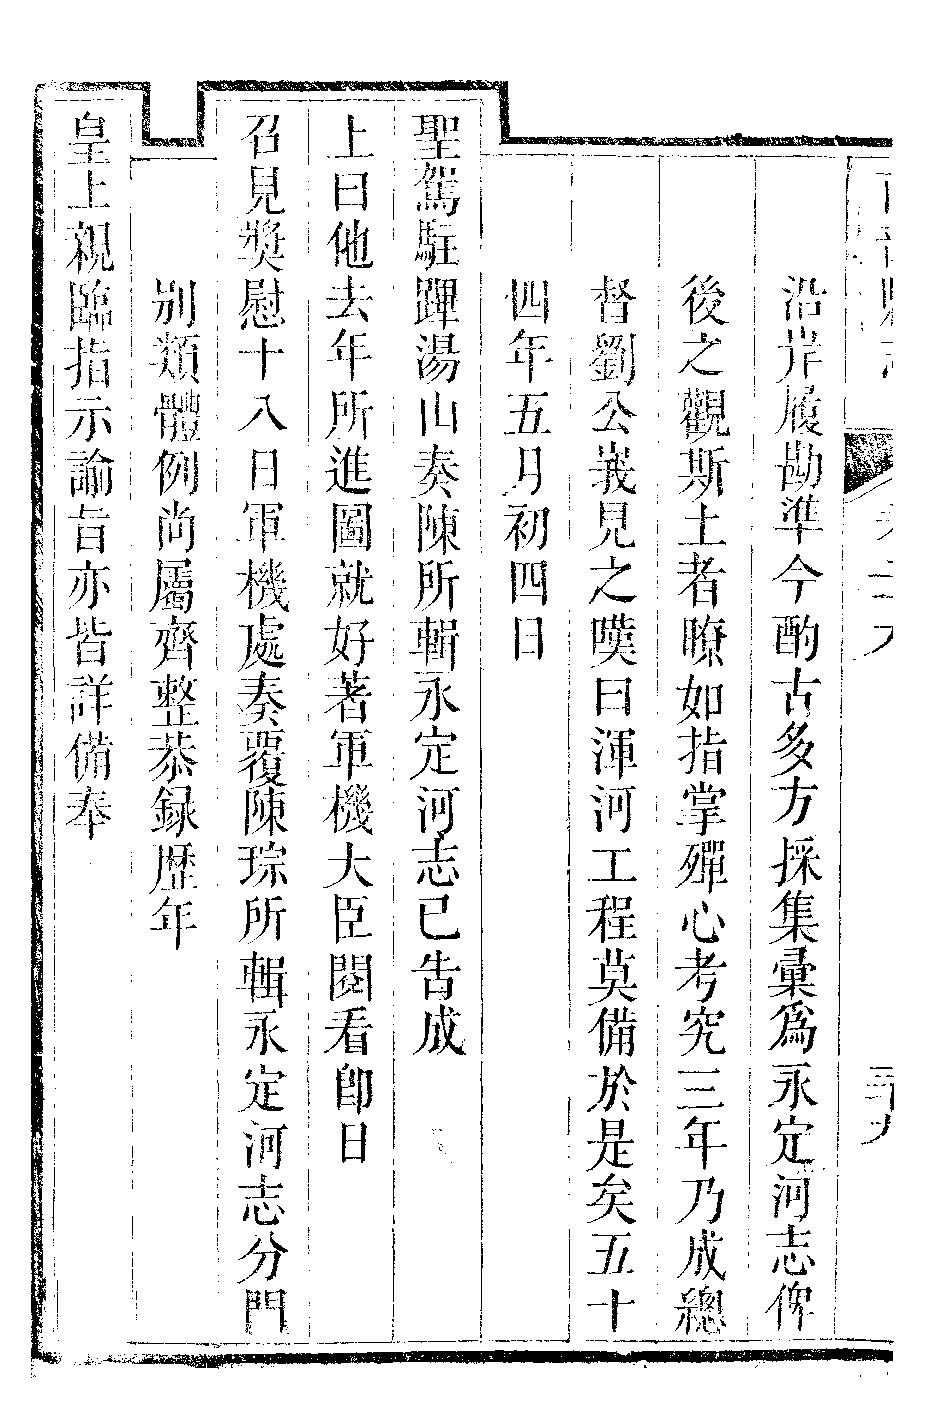 沿岸履勘準今酌古多方採集彙爲永定河志俾
後之觀斯土者瞭如指掌殫心考究三年乃成總
督劉公峩見之嘆曰渾河工程莫備於是矣五十
四年五月初四日
聖駕駐蹕湯山奏陳所輯永定河志已告成
上曰他去年所進圖就好著軍機大臣閱看卽日
召見獎慰十八日軍機處奏覆陳琮所輯永定河志分門
別類體例尚屬齊整恭録歷年
皇上親臨指示諭旨亦皆詳備奉